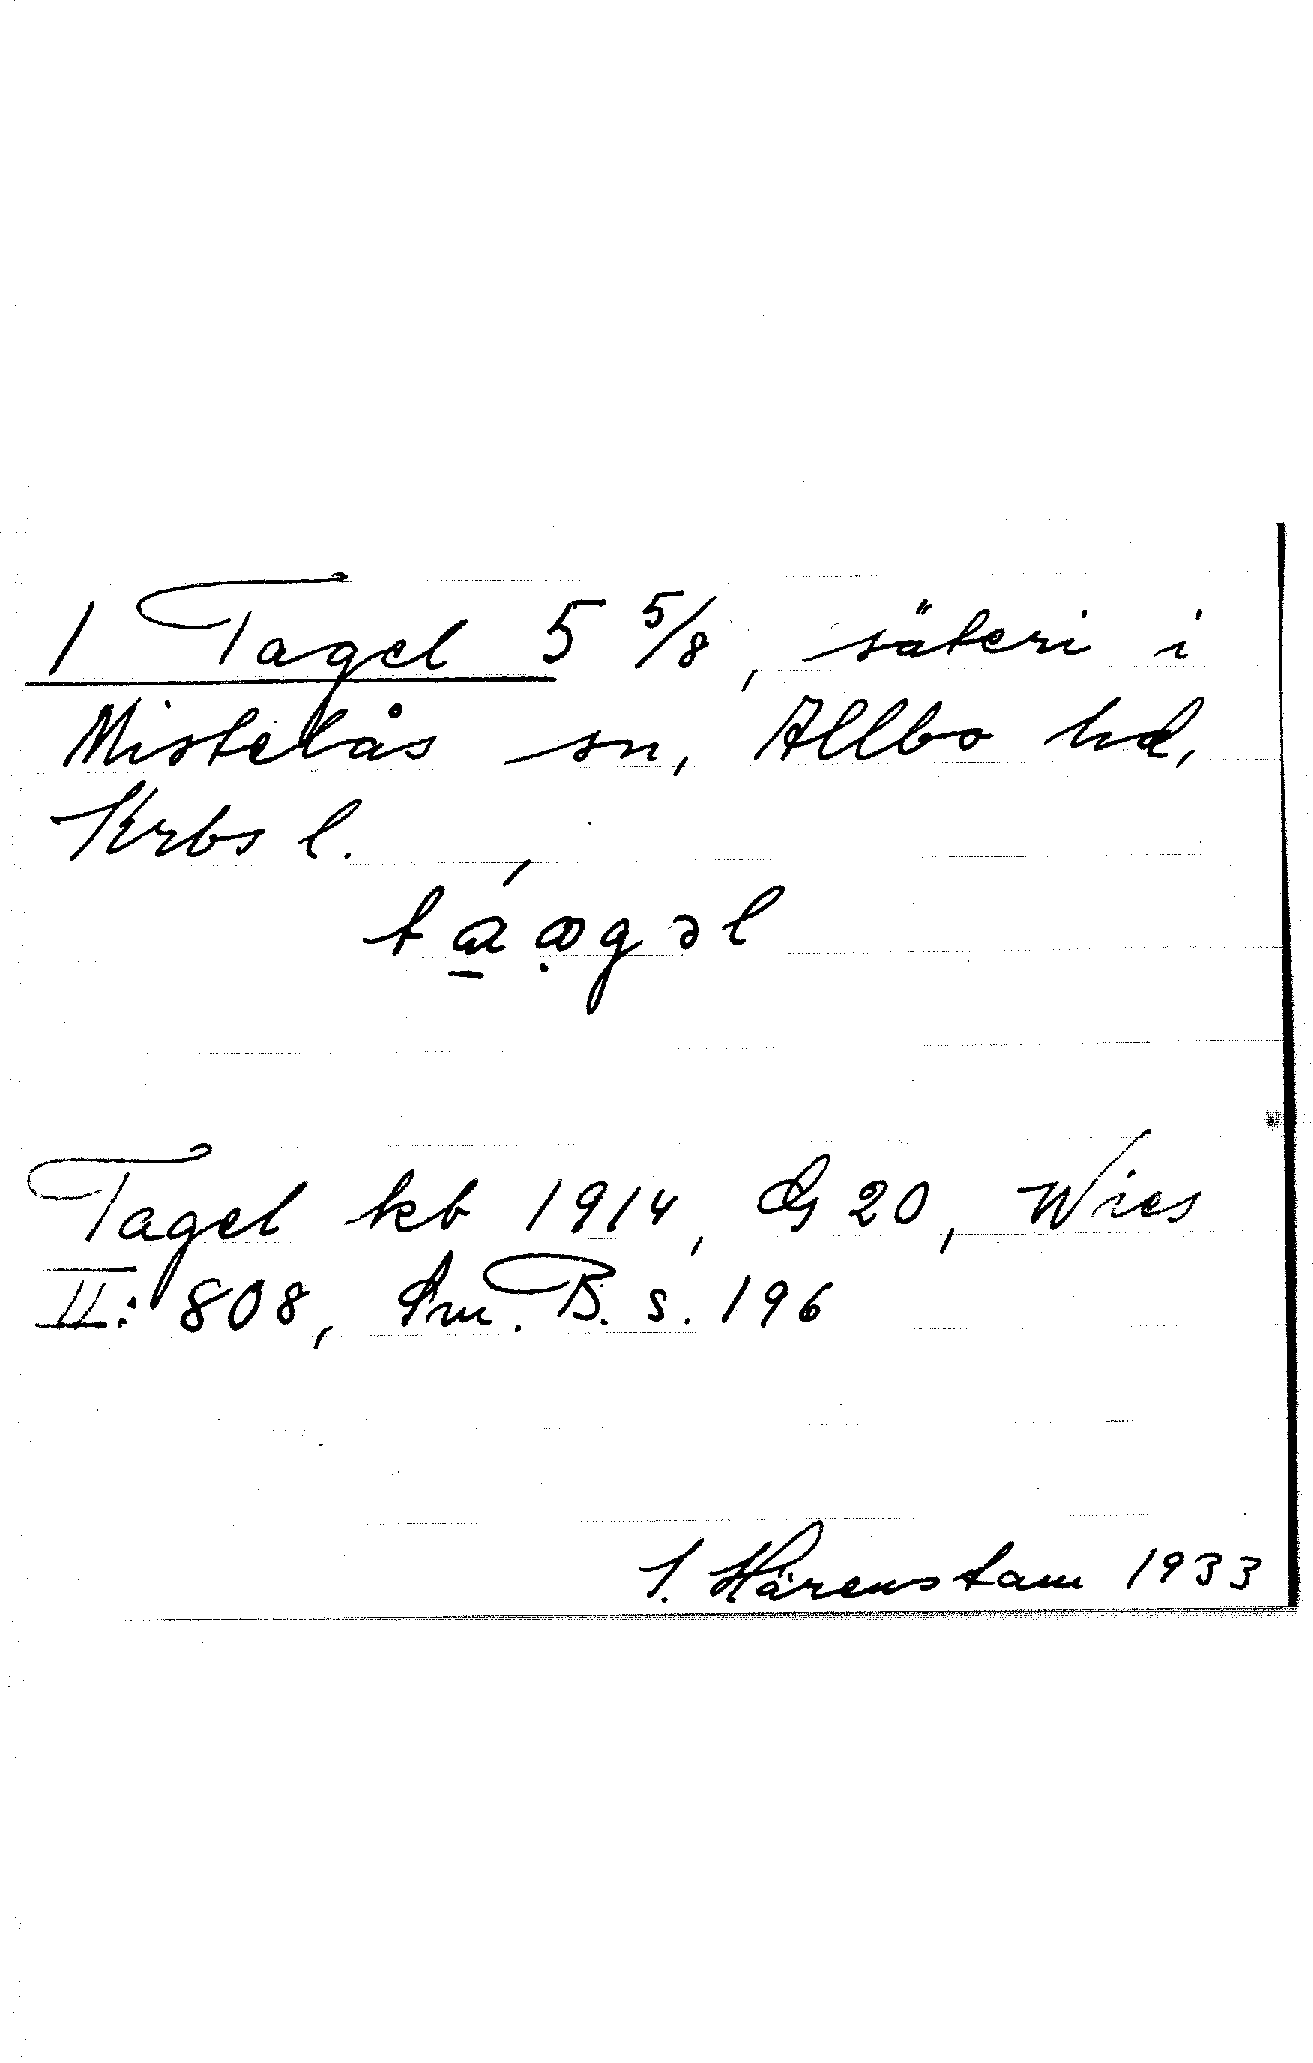 1 Tagel 5 5/8, säteri i
Mistelås sn, Allbo hd,
Krbs l.
Tagel kb 1914, GS 20, Wies
II: 808, Sm. B. s. 196
S. Härenstam 1933